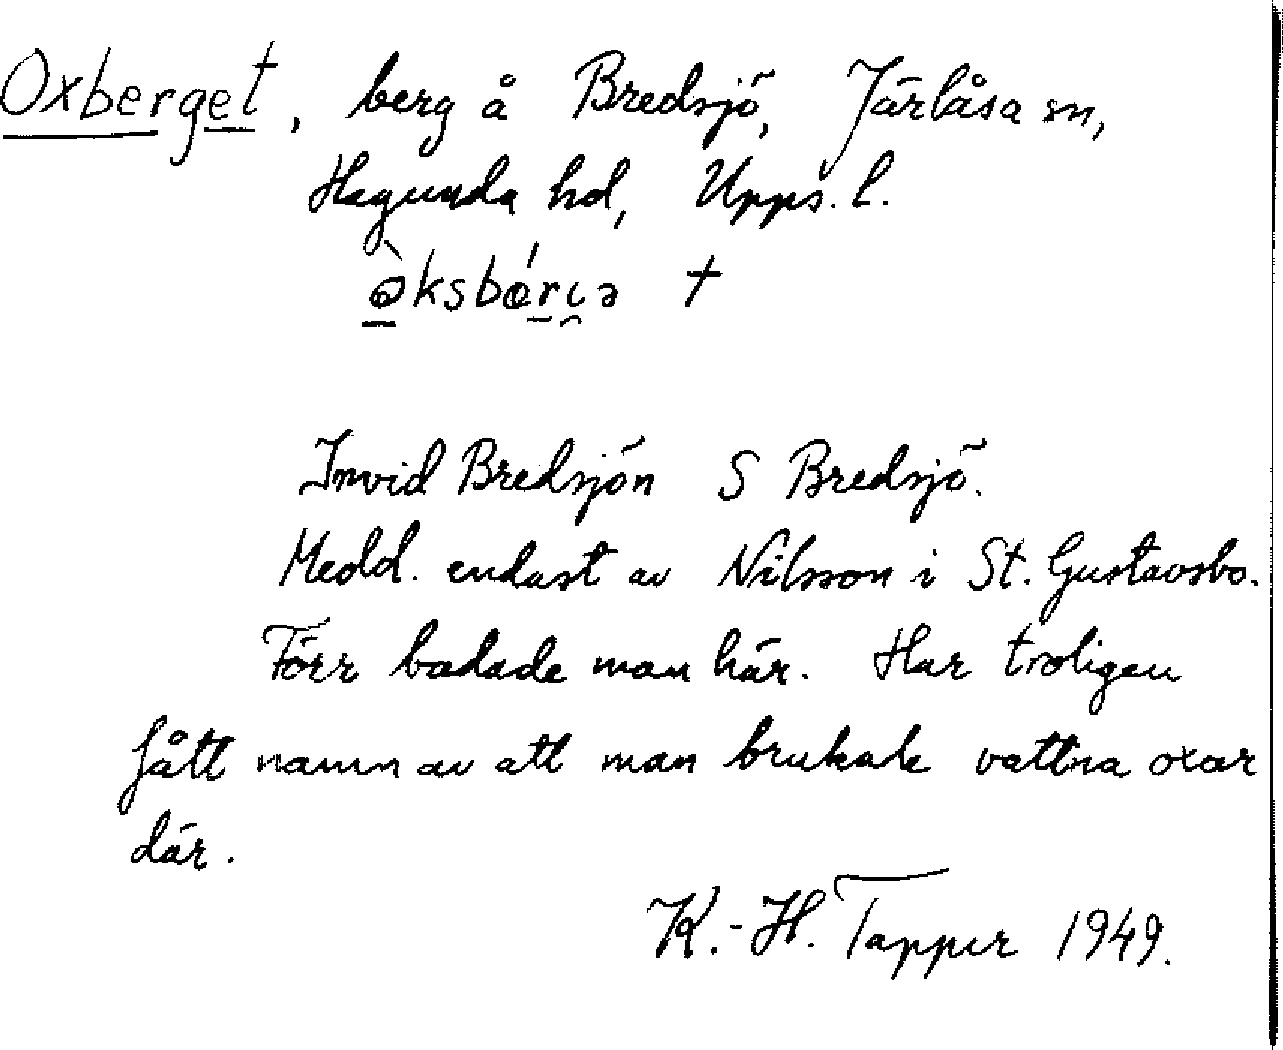 Oxberget, berg å Bredsjö, Järlåsa sn,
Hagunda hd, Upps. l.
†
Invid Bredsjön S Bredsjö.
Medd. endast av Nilsson i St. Gustavsbo.
Förr badade man här. Har troligen
fått namn av att man brukade vattna oxar
där.
K.-H. Tapper 1949.